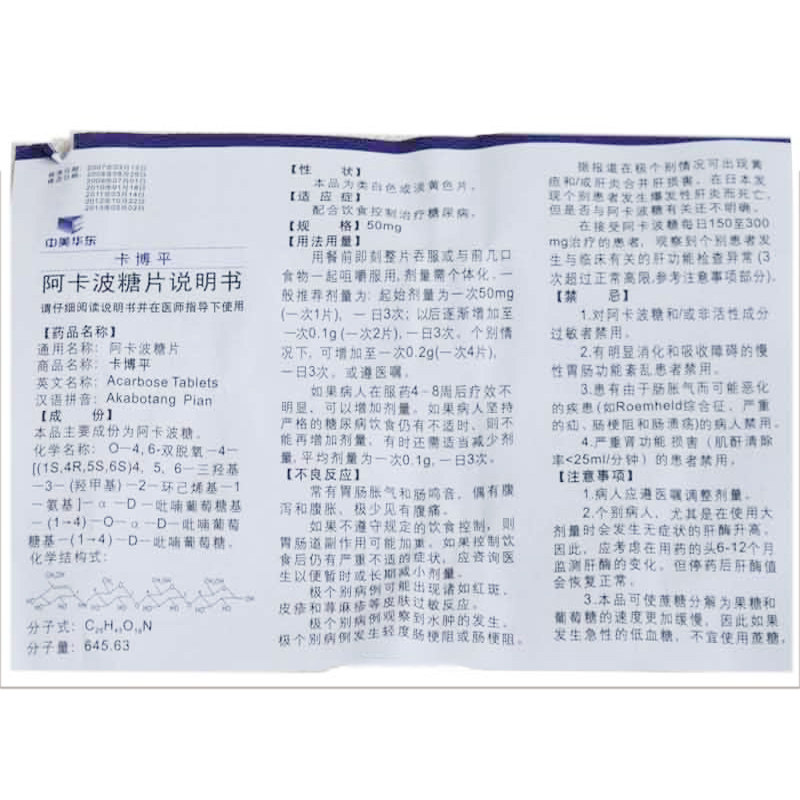 核准日期：2007年03月13日
修改日期：2008年08月28日
2009年07月01日
2010年01月18日
2011年05月18日
2012年10月22日
2013年03月02日
中美华东
卡博平
阿卡波糖片说明书
请仔细阅读说明书并在医师指导下使用
【药品名称】
通用名称：阿卡波糖片
商品名称：卡博平
英文名称：Acarbose Tablets
汉语拼音：Akabotang Pian
【成 份】
本品主要成份为阿卡波糖。
化学名称：O—4,6-双脱氧—4—
[(1S,4R,5S,6S)4，5，6—三羟基
—3—(羟甲基)—2—环己烯基—1
—氨基]—α —D —吡喃葡萄糖基
—(1→4)—O—α—D—吡喃葡萄
糖基—(1→4)—D—吡喃葡萄糖。
化学结构式：
分子式：C25H43O18N
分子量：645.63
【性 状】
本品为类白色或淡黄色片。
【适 应 症】
配合饮食控制治疗糖尿病。
【规 格】50mg
【用法用量】
用餐前即刻整片吞服或与前几口
食物一起咀嚼服用,剂量需个体化。一
般推荐剂量为：起始剂量为一次50mg
(一次1片)，一日3次；以后逐渐增加至
一次0.1g (一次2片),一日3次。个别情
况下,可增加至一次0.2g(一次4片),
一日3次。或遵医嘱。
如果病人在服药4-8周后疗效不
明显，可以增加剂量。如果病人坚持
严格的糖尿病饮食仍有不适时，则不
能再增加剂量，有时还需适当减少剂
量,平均剂量为一次0.1g,一日3次。
【不良反应】
常有胃肠胀气和肠鸣音，偶有腹
泻和腹胀，极少见有腹痛。
如果不遵守规定的饮食控制，则
胃肠道副作用可能加重。如果控制饮
食后仍有严重不适的症状，应咨询医
生以便暂时或长期减小剂量。
极个别病例可能出现诸如红斑、
皮疹和荨麻疹等皮肤过敏反应。
极个别病例观察到水肿的发生。
极个别病例发生轻度肠梗阻或肠梗阻。
据报道在极个别情况可出现黄
疸和/或肝炎合并肝损害。在日本发
现个别患者发生爆发性肝炎而死亡，
但是否与阿卡波糖有关还不明确。
在接受阿卡波糖每日150至300
mg治疗的患者，观察到个别患者发
生与临床有关的肝功能检查异常(3
次超过正常高限,参考注意事项部分)。
【禁 忌】
1.对阿卡波糖和/或非活性成分
过敏者禁用。
2.有明显消化和吸收障碍的慢
性胃肠功能紊乱患者禁用。
3.患有由于肠胀气而可能恶化
的疾患(如Roemheld综合征、严重
的疝、肠梗阻和肠溃疡)的病人禁用。
4.严重肾功能损害（肌酐清除
率<25ml/分钟）的患者禁用。
【注意事项】
1.病人应遵医嘱调整剂量。
2.个别病人，尤其是在使用大
剂量时会发生无症状的肝酶升高。
因此，应考虑在用药的头6-12个月
监测肝酶的变化。但停药后肝酶值
会恢复正常。
3.本品可使蔗糖分解为果糖和
葡萄糖的速度更加缓慢，因此如果
发生急性的低血糖，不宜使用蔗糖，